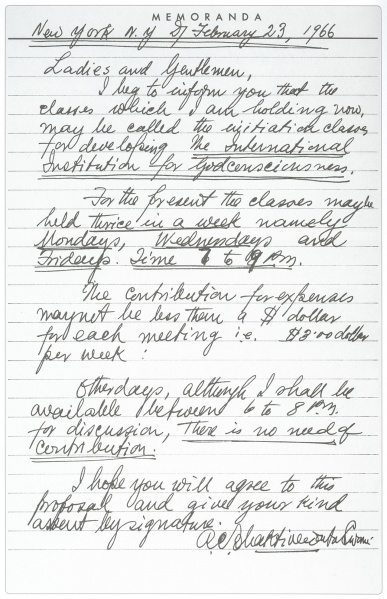 MEMORANDA
New York N.Y D/ February 23, 1966
Ladies and Gentlemen,
I beg to inform you that the
classes which I am holding now,
may be called the initiation classes
for developing the International
Institution for Godconsciousness.
For the present the classes maybe
held thrice in a week namely
Mondays, Wednesdays and
Fridays. Time 7 to 9 P.m.
The contribution for expenses
maynot be less than a $ dollar
for each meeting i.e. $3.00 dollar
per week :
Otherdays, although I shall be
available between 6 to 8 P.m.
for discussion, There is no need of
contribution.
I hope you will agree to this
proposal and give your kind
assent by signature.
A.C. Bhaktivedanta Swami